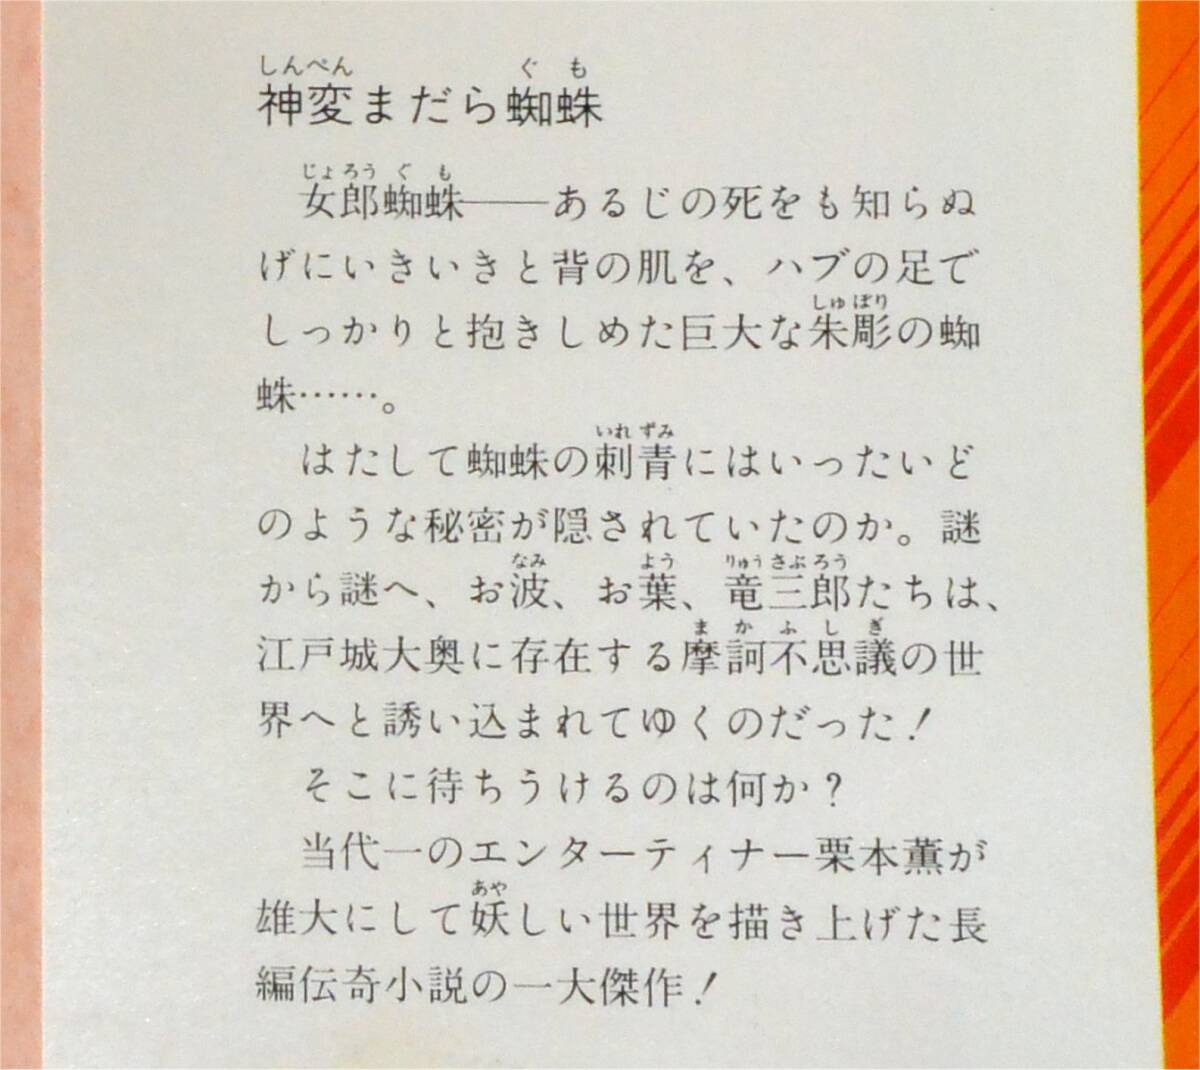 しんぺん ぐも
神変まだら蜘蛛
じょろうぐも
女郎蜘蛛――あるじの死をも知らぬ
げにいきいきと背の肌を、ハブの足で
しゅぼり
しっかりと抱きしめた巨大な朱彫の蜘
蛛……。
いれずみ
はたして蜘蛛の刺青にはいったいど
のような秘密が隠されていたのか。謎
なみ よう りゅうさぶろう
から謎へ、お波、お葉、竜三郎たちは、
まかふしぎ
江戸城大奥に存在する摩訶不思議の世
界へと誘い込まれてゆくのだった！
そこに待ちうけるのは何か？
当代一のエンターティナー栗本薫が
あや
雄大にして妖しい世界を描き上げた長
編伝奇小説の一大傑作！